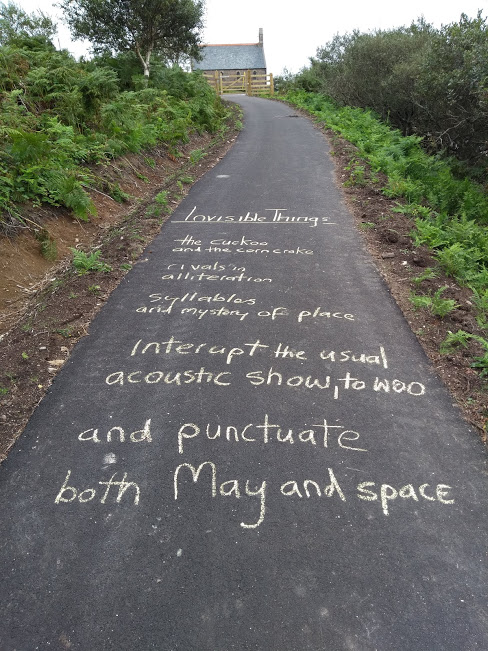 Invisible Things
the cuckoo
and the corncrake
rivals in
alliteration
Syllables
and mystery of place
Interupt the usual
acoustic show, to woo
and punctuate
both May and space